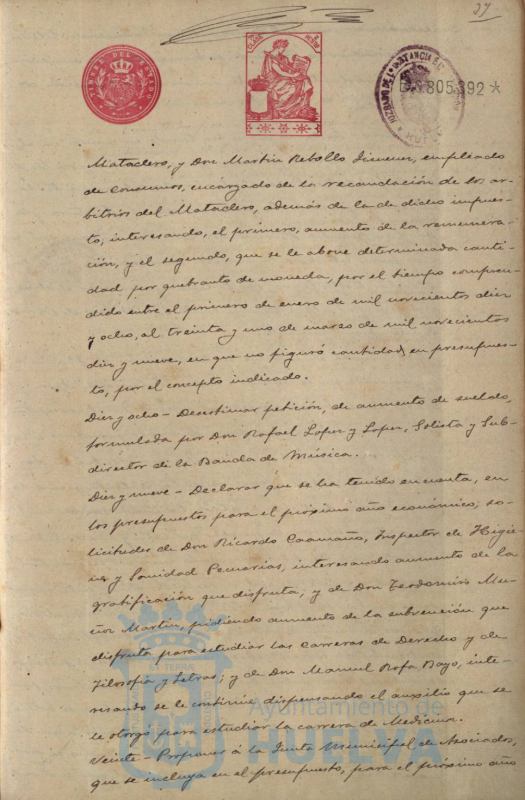 37
TIMBRE DEL ESTADO
CLASE
JUZGADO DE 1ª INSTANCIA
D.0.805.392 *
Matadero, y Don Martin Rebollo Jimenez, empleado
de Consumos, encargado de la recaudación de los ar-
bitrios del Matadero, además de la de dicho impues-
to, interesando, el primero, aumento de la remunera-
ción, y el segundo, que se le abone determinada canti-
dad por quebranto de moneda, por el tiempo compren-
dido entre el primero de enero de mil novecientos diez
y ocho, al treinta y uno de marzo de mil novecientos
diez y nueve, en que no figuró cantidad, en presupues-
to, por el concepto indicado.
Diez y ocho - Desestimar petición, de aumento de sueldo,
formulada por Don Rafael Lopez y Lopez, Solista y Sub-
director de la Banda de Música.
Diez y nueve - Declarar que se ha tenido en cuenta, en
los presupuestos para el próximo año económico, so-
licitudes de Don Ricardo Caamaño, Inspector de Higie-
ne y Sanidad Pecuarias, interesando aumento de la
gratificación que disfruta, y de Don Teodomiro Mu-
ñoz Martin, pidiendo aumento de la subvención que
disfruta para estudiar las carreras de Derecho y de
Filosofía y Letras; y de Don Manuel Rofa Bayo, inte-
resando se le continúe dispensando el auxilio que se
le otorgó para estudiar la carrera de Medicina.
Veinte - Proponer á la Junta Municipal de Asociados,
que se incluya en el presupuesto, para el próximo año
Ayuntamiento de
HUELVA